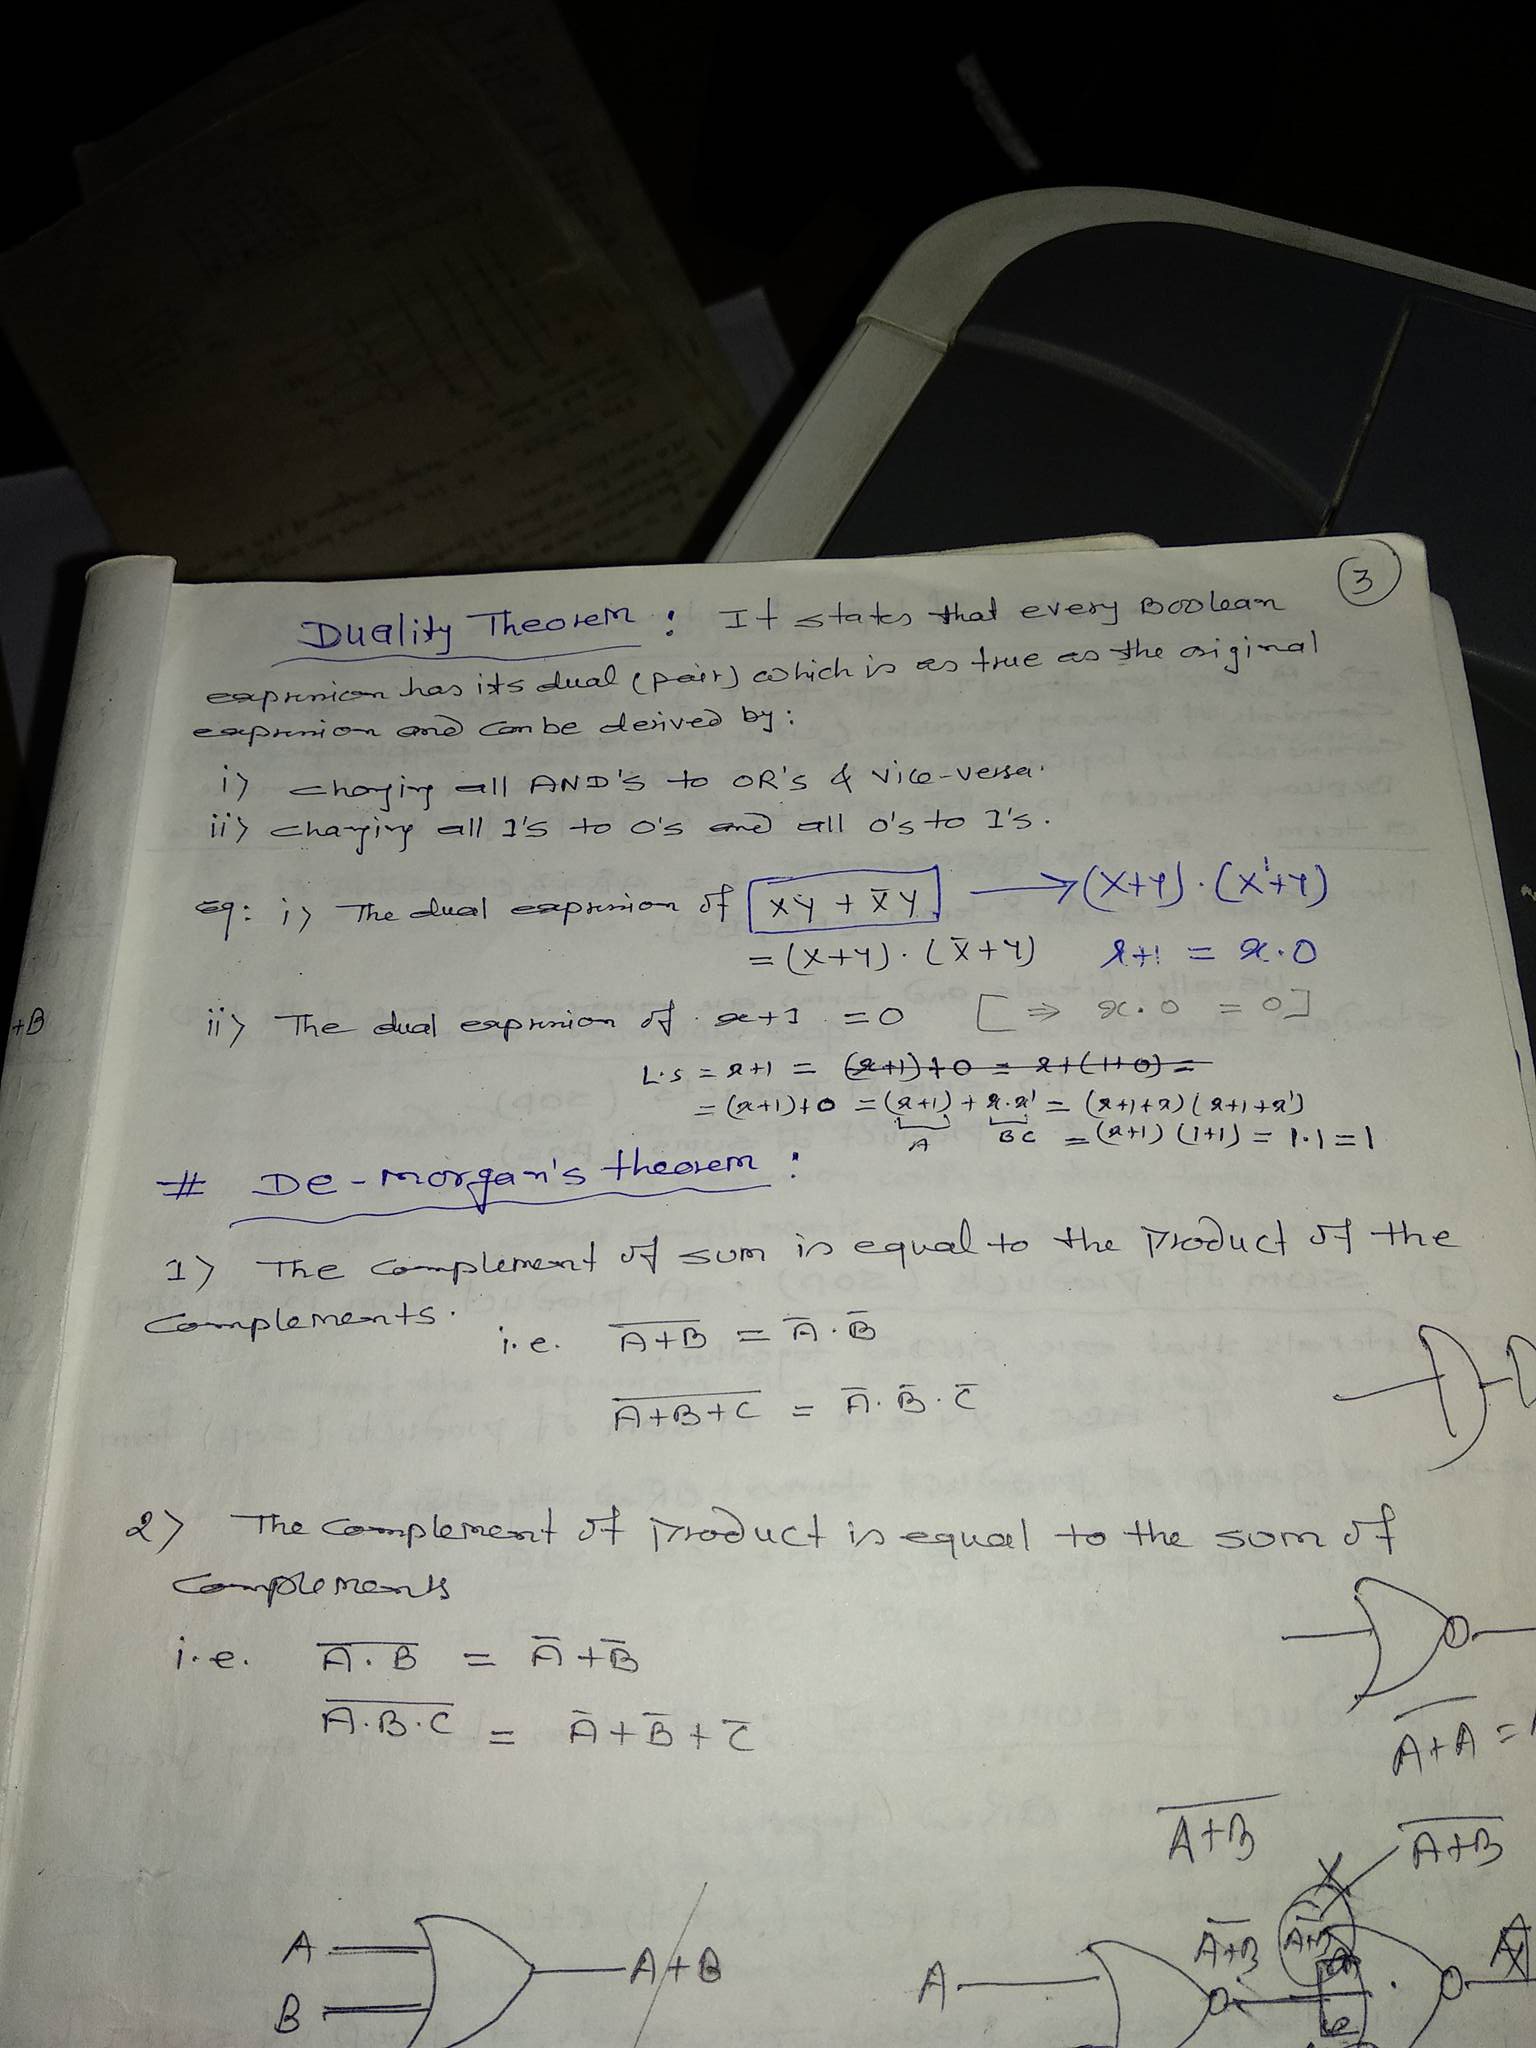 3
Duality Theorem : It states that every Boolean
expression has its dual (pair) which is as true as the original
expression and can be derived by:
i) changing all AND's to OR's & vice-versa.
ii) changing all 1's to 0's and all 0's to 1's.
eg: i) The dual expression of xy + x̄y → (x+y).(x'+y)
= (x+y).(x̄+y) x+1 = x.0
+B
ii) The dual expression of x+1 = 0 [⇒ x.0 = 0]
L.S = x+1 = (x+1)+0 = x+(1+0) =
= (x+1)+0 = (x+1) + x.x' = (x+1+x)(x+1+x')
A BC = (x+1)(1+1) = 1.1 = 1
# De-morgan's theorem :
1) The complement of sum is equal to the Product of the
complements.
i.e. \overline{A+B} = Ā.B̄
\overline{A+B+C} = Ā.B̄.C̄
2) The complement of Product is equal to the sum of
complements
i.e. \overline{A.B} = Ā+B̄
\overline{A.B.C} = Ā+B̄+C̄
\overline{A+A} =
\overline{A+B}
\overline{A+B}
A A+B A \overline{A+B}
B